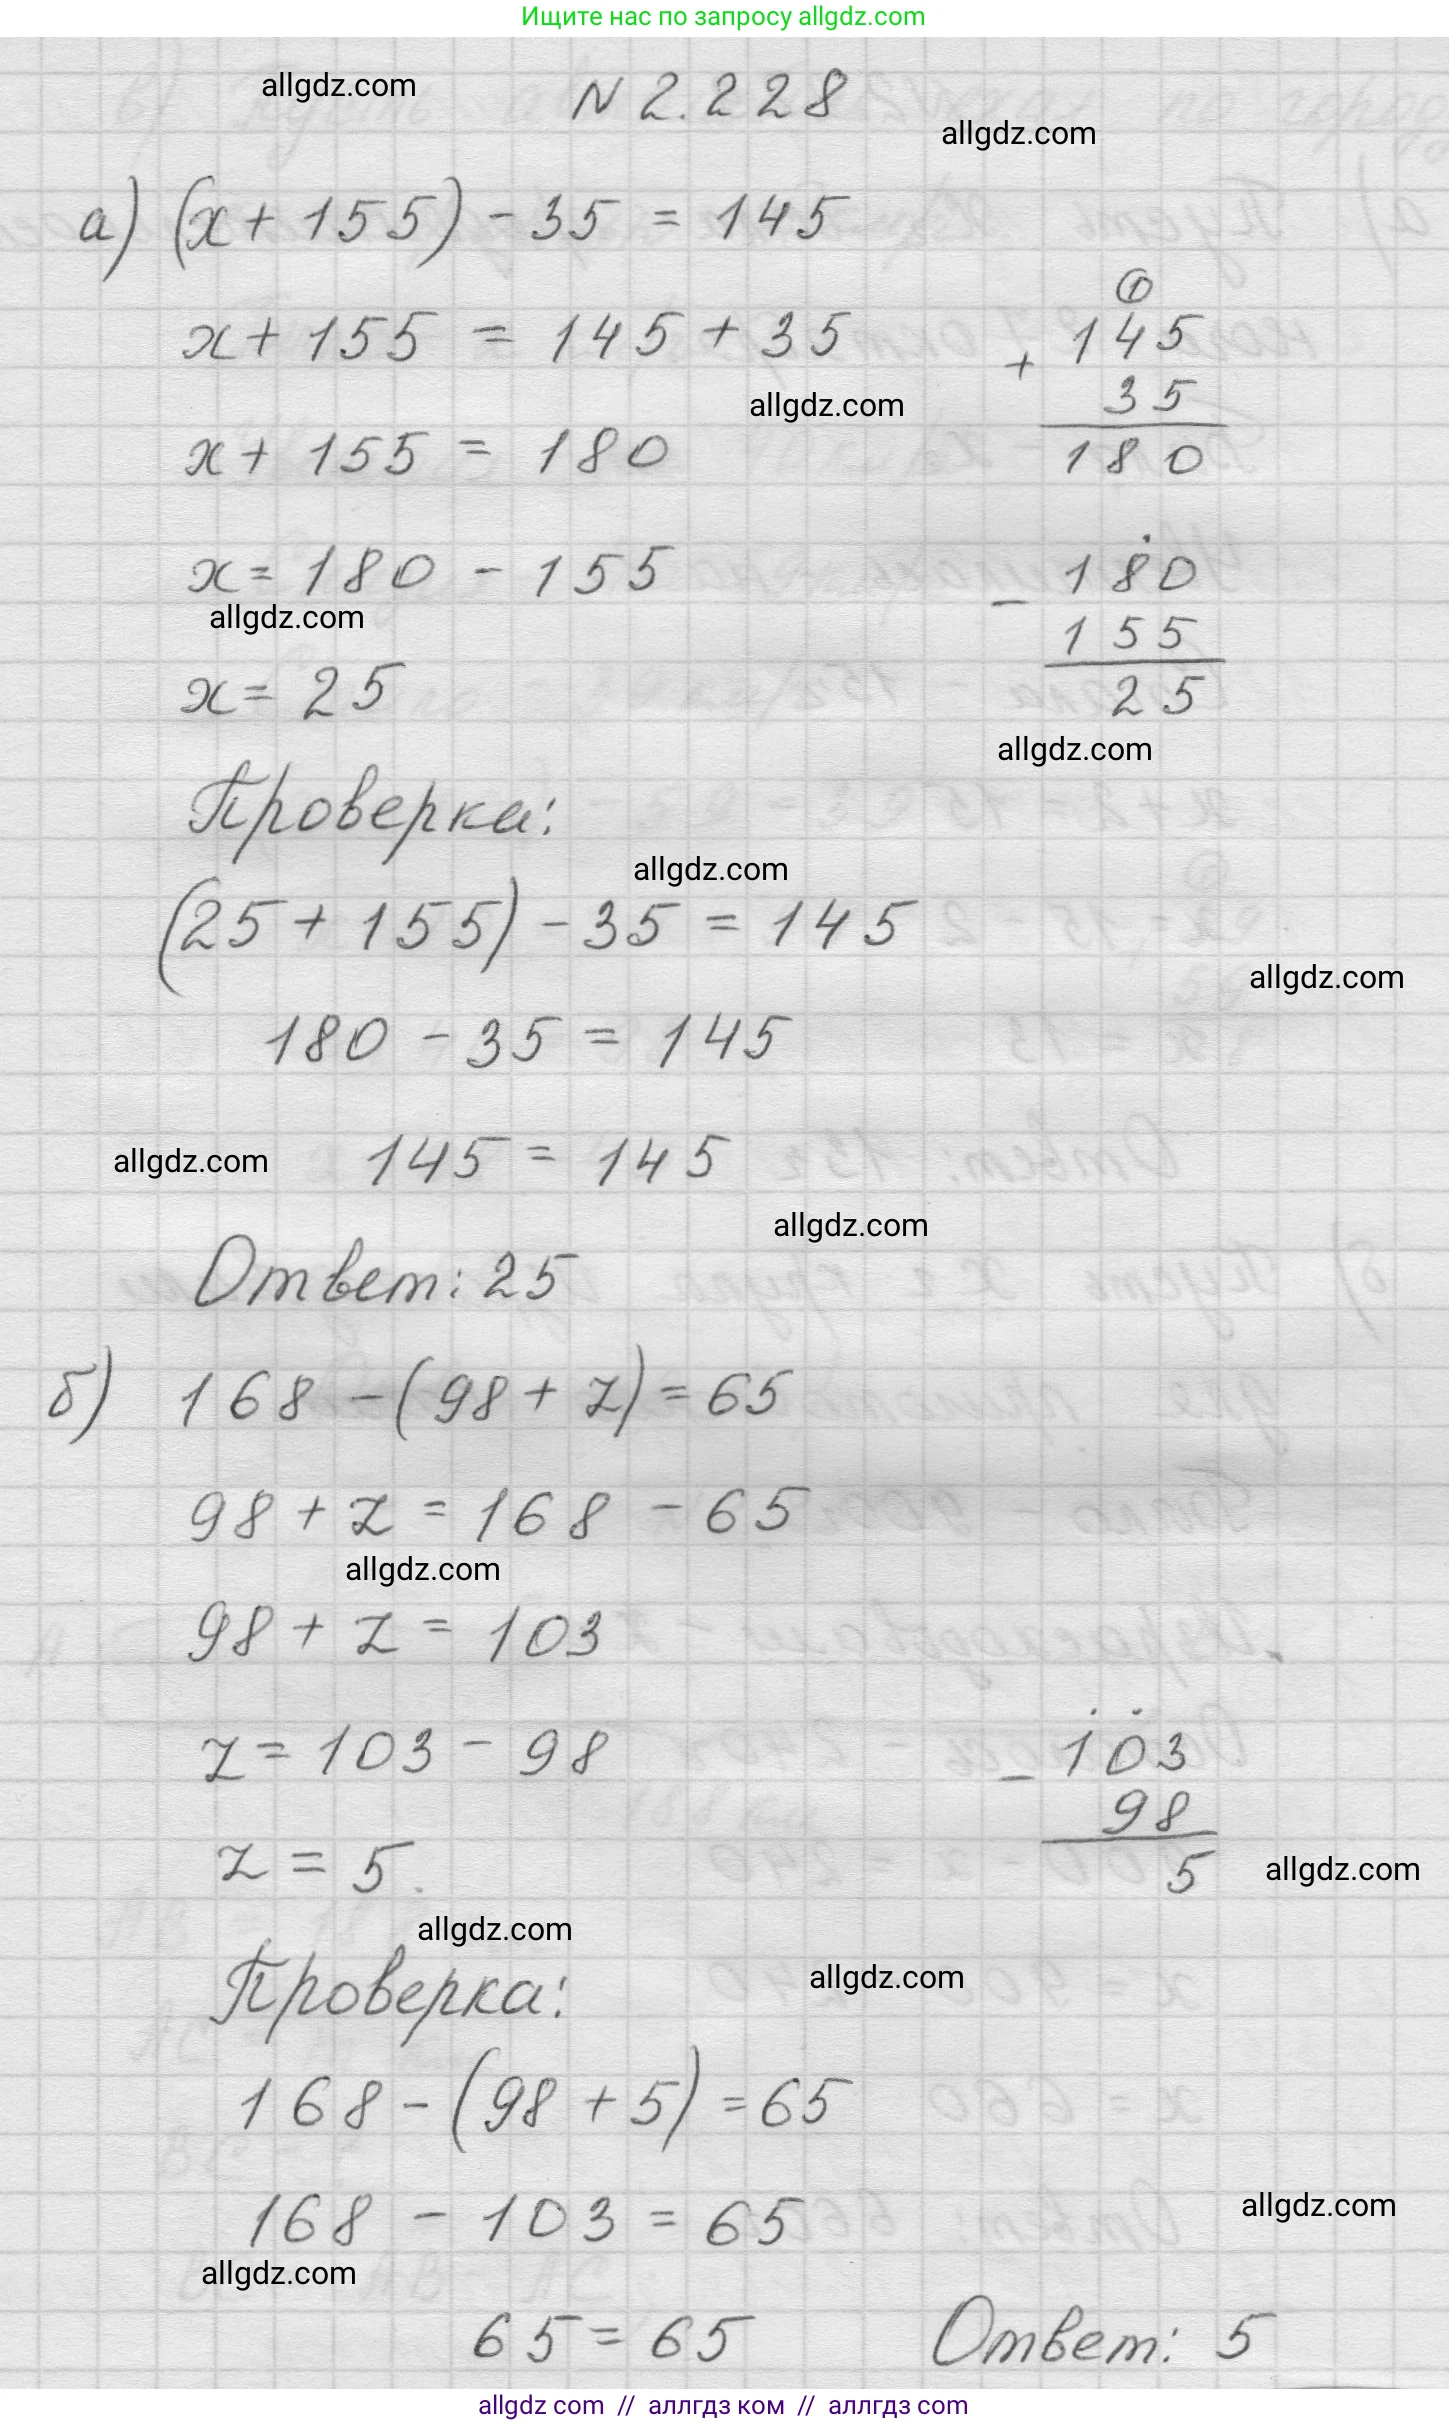 Ищите нас по запросу allgdz.com
allgdz.com
N 2.228
allgdz.com
а) (x + 155) - 35 = 145
x + 155 = 145 + 35
1
+ 145
35
180
allgdz.com
x + 155 = 180
x = 180 - 155
- 180
155
25
allgdz.com
x = 25
allgdz.com
Проверка:
allgdz.com
(25 + 155) - 35 = 145
allgdz.com
180 - 35 = 145
allgdz.com
145 = 145
allgdz.com
Ответ: 25
б) 168 - (98 + z) = 65
98 + z = 168 - 65
allgdz.com
98 + z = 103
z = 103 - 98
- 103
98
5
z = 5
allgdz.com
allgdz.com
Проверка:
allgdz.com
168 - (98 + 5) = 65
168 - 103 = 65
allgdz.com
allgdz.com
65 = 65
Ответ: 5
allgdz com // аллгдз ком // аллгдз com